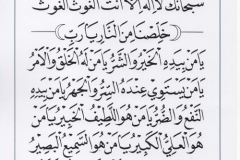 سُبْحَانَكَ لَا إِلَهَ إِلَّا أَنْتَ الْغَوْثَ الْغَوْثَ
خَلِّصْنَا مِنَ النَّارِ يَا رَبِّ
يَا مَنْ بِيَدِهِ الْخَيْرُ وَالشَّرُّ يَا مَنْ لَهُ الْخَلْقُ وَالْأَمْرُ
يَا مَنْ يَسْتَوِي عِنْدَهُ السِّرُّ وَالْجَهْرُ يَا مَنْ بِيَدِهِ
النَّفْعُ وَالضُّرُّ يَا مَنْ هُوَ اللَّطِيفُ الْخَبِيرُ يَا مَنْ
هُوَ الْعَلِيُّ الْكَبِيرُ يَا مَنْ هُوَ السَّمِيعُ الْبَصِيرُ